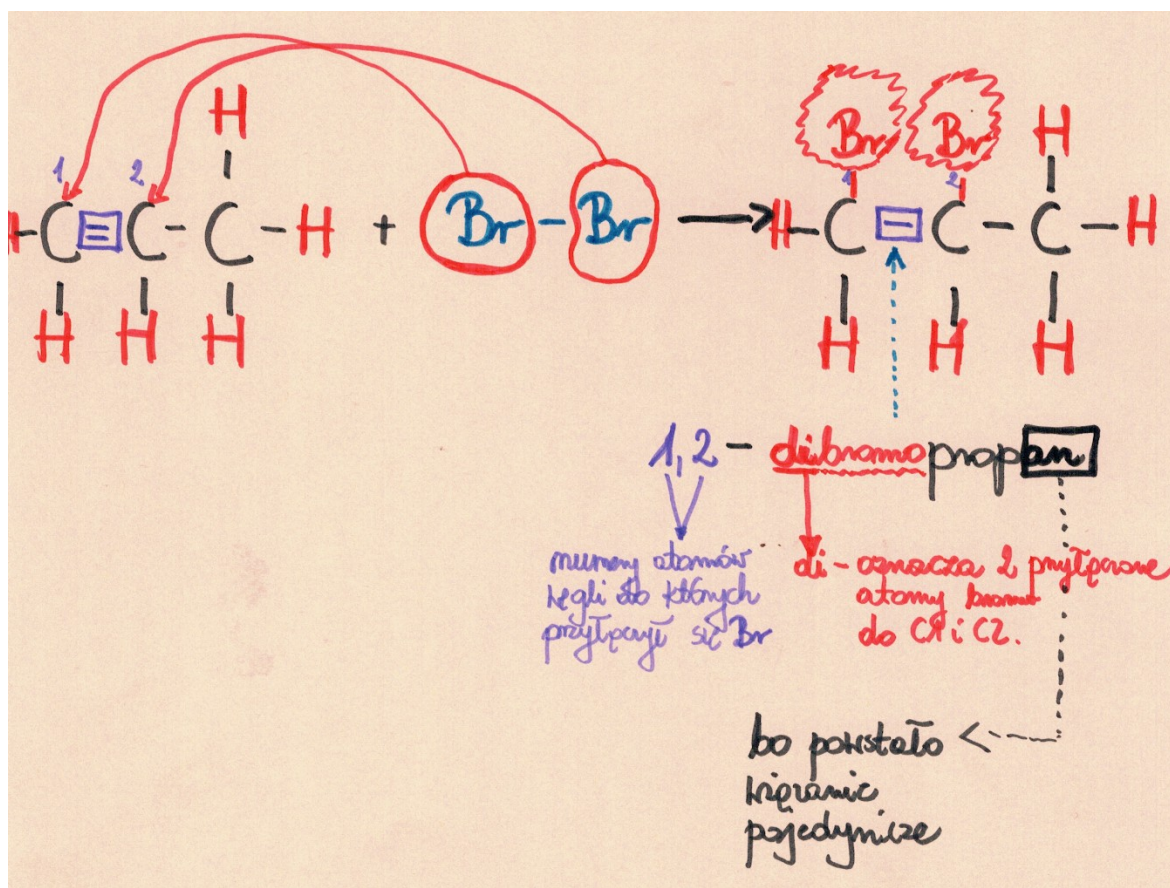 H Br Br H
1 2 1 2
H-C≡C-C-H + Br-Br → H-C-C-C-H
H H H H H H
1,2 - dibromopropan
numery atomów
węgli do których
przyłączył się Br
di - oznacza 2 przyłączone
atomy bromu
do C1 i C2.
bo powstało
wiązanie
pojedyncze